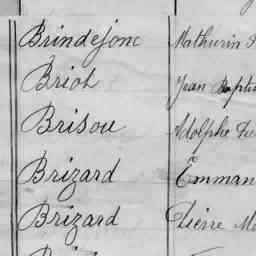 Brindejonc Mathurin
Briot Jean Baptis
Brisou Adolphe
Brizard Emman
Brizard Pierre